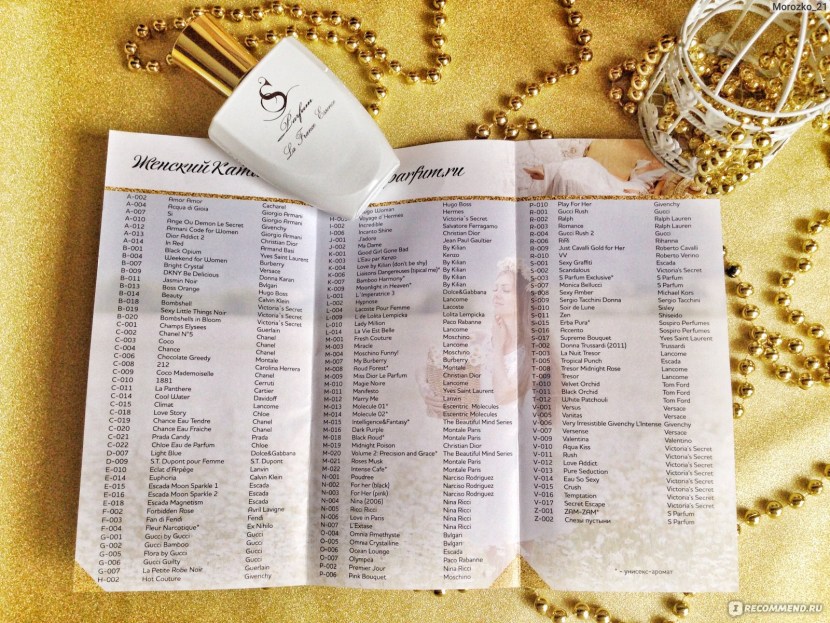 Morozko_21
S
Parfum
La Franc Essence
Женский Кат
parfum.ru
A-002 Amor Amor Cacharel
A-004 Acqua di Gioia Giorgio Armani
A-007 Si Giorgio Armani
A-010 Ange Ou Demon Le Secret Givenchy
A-012 Armani Code for Women Giorgio Armani
A-013 Dior Addict 2 Christian Dior
A-014 In Red Armand Basi
B-001 Black Opium Yves Saint Laurent
B-004 Weekend for Women Burberry
B-007 Bright Crystal Versace
B-009 DKNY Be Delicious Donna Karan
B-011 Jasmin Noir Bvlgari
B-013 Boss Orange Hugo Boss
B-014 Beauty Calvin Klein
B-018 Bombshell Victoria's Secret
B-019 Sexy Little Things Noir Victoria's Secret
B-020 Bombshells in Bloom Victoria's Secret
C-001 Champs Elysees Guerlain
C-002 Chanel N°5 Chanel
C-003 Coco Chanel
C-004 Chance Chanel
C-006 Chocolate Greedy Montale
C-008 212 Carolina Herrera
C-009 Coco Mademoiselle Chanel
C-010 1881 Cerruti
C-011 La Panthere Cartier
C-014 Cool Water Davidoff
C-015 Climat Lancome
C-018 Love Story Chloe
C-019 Chance Eau Tendre Chanel
C-020 Chance Eau Fraiche Chanel
C-021 Prada Candy Prada
C-022 Chloe Eau de Parfum Chloe
D-007 Light Blue Dolce&Gabbana
D-009 S.T. Dupont pour Femme S.T. Dupont
E-010 Eclat d'Arpège Lanvin
E-014 Euphoria Calvin Klein
E-015 Escada Moon Sparkle 1 Escada
E-016 Escada Moon Sparkle 2 Escada
E-018 Escada Magnetism Escada
F-002 Forbidden Rose Avril Lavigne
F-003 Fan di Fendi Fendi
F-004 Fleur Narcotique* Ex Nihilo
G-001 Gucci by Gucci Gucci
G-002 Gucci Bamboo Gucci
G-005 Flora by Gucci Gucci
G-006 Gucci Guilty Gucci
G-007 La Petite Robe Noir Guerlain
H-002 Hot Couture Givenchy
Woman Hugo Boss
Voyage d'Hermes Hermes
I-002 Incredible Victoria's Secret
I-004 Incanto Shine Salvatore Ferragamo
J-001 J'adore Christian Dior
J-002 Ma Dame Jean Paul Gaultier
K-001 Good Girl Gone Bad By Kilian
K-003 L'Eau per Kenzo Kenzo
K-004 Love by Kilian (don't be shy) By Kilian
K-006 Liaisons Dangereuses (typical me)* By Kilian
K-007 Bamboo Harmony* By Kilian
K-009 Moonlight in Heaven* By Kilian
L-001 L'Imperatrice 3 Dolce&Gabbana
L-002 Hypnose Lancome
L-004 Lacoste Pour Femme Lacoste
L-009 L de Lolita Lempicka Lolita Lempicka
L-010 Lady Million Paco Rabanne
L-014 La Vie Est Belle Lancome
M-001 Fresh Couture Moschino
M-003 Miracle Lancome
M-004 Moschino Funny! Moschino
M-007 My Burberry Burberry
M-008 Roud Forest* Montale
M-009 Miss Dior Le Parfum Christian Dior
M-010 Magie Noire Lancome
M-011 Manifesto Yves Saint Laurent
M-012 Marry Me Lanvin
M-013 Molecule 01* Escentric Molecules
M-014 Molecule 02* Escentric Molecules
M-015 Intelligence&Fantasy* The Beautiful Mind Series
M-016 Dark Purple Montale Paris
M-018 Black Roud* Montale Paris
M-019 Midnight Poison Christian Dior
M-020 Volume 2: Precision and Grace* The Beautiful Mind Series
M-021 Roses Musk Montale Paris
M-022 Intense Cafe* Montale Paris
N-001 Poudree Narciso Rodriguez
N-002 For Her (black) Narciso Rodriguez
N-003 For Her (pink) Narciso Rodriguez
N-004 Nina (2006) Nina Ricci
N-005 Ricci Ricci Nina Ricci
N-006 Love in Paris Nina Ricci
N-007 L'Extase Nina Ricci
O-004 Omnia Amethyste Bvlgari
O-005 Omnia Crystalline Bvlgari
O-006 Ocean Lounge Escada
O-007 Olympea Paco Rabanne
P-002 Premier Jour Nina Ricci
P-006 Pink Bouquet Moschino
P-010 Play For Her Givenchy
R-001 Gucci Rush Gucci
R-002 Ralph Ralph Lauren
R-003 Romance Ralph Lauren
R-004 Gucci Rush 2 Gucci
R-008 RiRi Rihanna
R-009 Just Cavalli Gold for Her Roberto Cavalli
R-010 VV Roberto Verino
S-001 Sexy Graffiti Escada
S-002 Scandalous Victoria's Secret
S-003 S Parfum Exclusive* S Parfum
S-007 Monica Bellucci S Parfum
S-008 Sexy Amber Michael Kors
S-009 Sergio Tacchini Donna Sergio Tacchini
S-010 Soir de Lune Sisley
S-011 Zen Shiseido
S-015 Erba Pura* Sospiro Perfumes
S-016 Accento Sospiro Perfumes
S-017 Supreme Bouquet Yves Saint Laurent
T-002 Donna Trussardi (2011) Trussardi
T-003 La Nuit Tresor Lancome
T-005 Tropical Punch Escada
T-008 Tresor Midnight Rose Lancome
T-009 Tresor Lancome
T-010 Velvet Orchid Tom Ford
T-011 Black Orchid Tom Ford
T-012 White Patchouli Tom Ford
V-001 Versus Versace
V-005 Vanitas Versace
V-006 Very Irresistible Givenchy L'Intense Givenchy
V-007 Versense Versace
V-009 Valentina Valentino
V-010 Aqua Kiss Victoria's Secret
V-011 Rush Victoria's Secret
V-012 Love Addict Victoria's Secret
V-013 Pure Seduction Victoria's Secret
V-014 Eau So Sexy Victoria's Secret
V-015 Crush Victoria's Secret
V-016 Temptation Victoria's Secret
V-017 Secret Escape Victoria's Secret
Z-001 ZAM-ZAM* S Parfum
Z-002 Слезы пустыни S Parfum
* - унисекс-аромат
RECOMMEND.RU